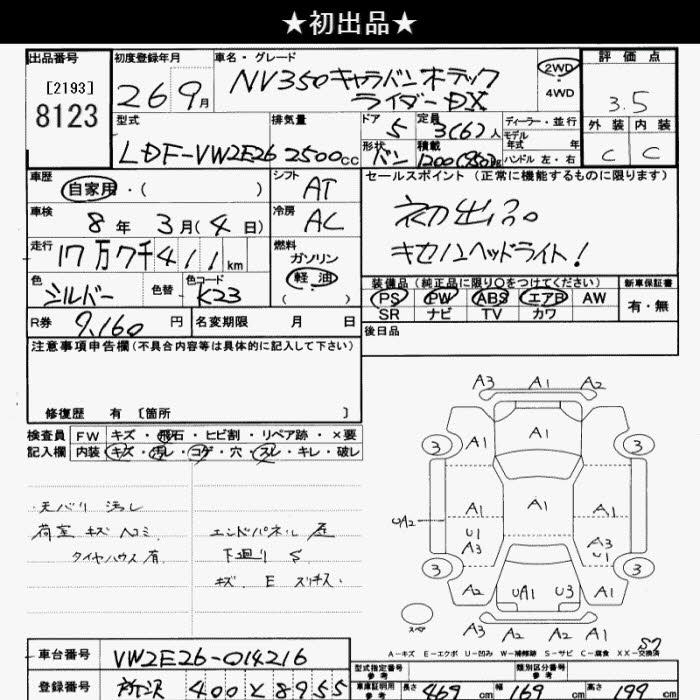 ★初出品★
出品番号
[2193]
8123
初度登録年月
26 9月
車名・グレード
NV350キャラバンオーテック
ライダーDX
2WD
・
4WD
評価点
3.5
外装 内装
C C
型式
LDF-VW2E26
排気量
2500cc
ドア
5
定員
3(6)人
形状
バン
積載
1200(950)kg
ディーラー・並行
モデル
年式 年
ハンドル 左・右
車歴
自家用・( )
シフト
AT
車検
8年 3月(4日)
冷房
AC
走行
17万7千411km
燃料
ガソリン
軽油
( )
色
シルバー
色替
色コード
K23
R券
9,160円
名変期限 月 日
セールスポイント(正常に機能するものに限ります)
初出品。
キセノンヘッドライト!
装備品(純正品に限り○をつけてください)
PS PW ABS エアB AW
SR ナビ TV カワ
新車保証書
有・無
後日品
注意事項申告欄(不具合内容等は具体的に記入して下さい)
修復歴 有 〔箇所 〕
検査員
記入欄
FW キズ・飛石・ヒビ割・リペア跡・×要
内装 キズ・汚レ・コゲ・穴・スレ・キレ・破レ
天バリ 汚レ
荷室 キズ ヘコミ
タイヤハウス有
エンドパネル
下廻り S
キズ. E
A3 A1 A2
A1
3 A1 A1 3
UA2
A1 A1 A1
U1
A3
A3
U1
3 3
A2 UA1 U3 A1
スペア
A3 A2 A2 A1
A-キズ E-エクボ U-凹み W-補修跡 S-サビ C-腐食 XX-交換済
車台番号
VW2E26-014216
登録番号
所沢 400 そ 8955
型式指定番号
参考
類別区分番号
参考
車庫証明用
参考
長さ 469cm 幅 169cm 高さ 199cm